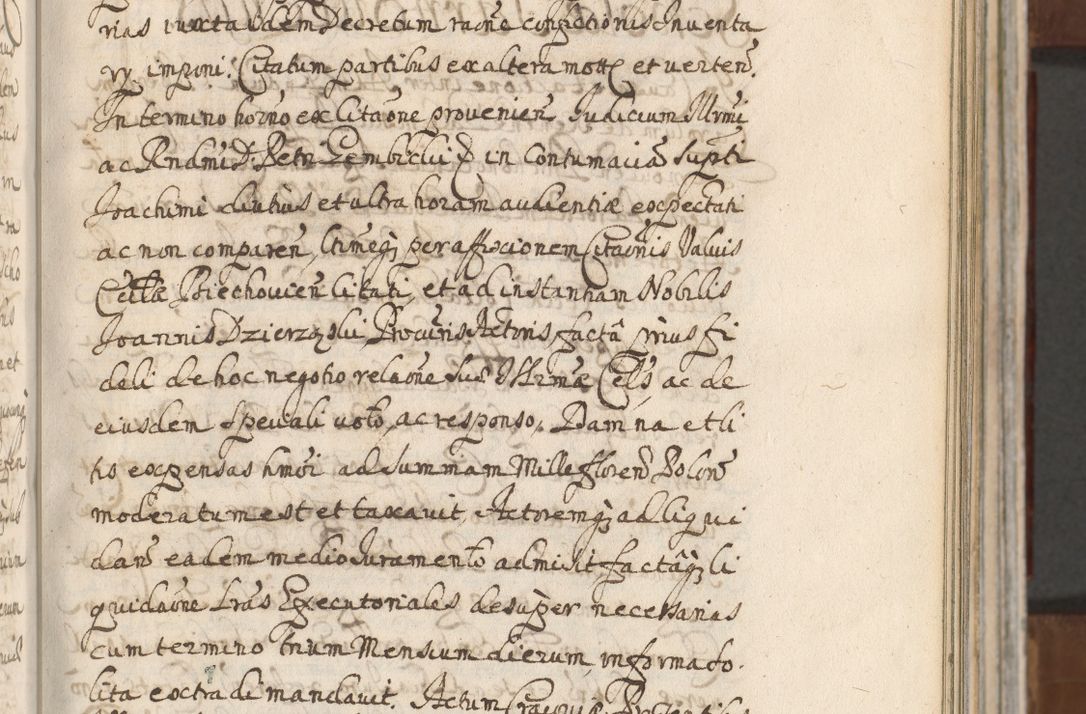 rias iuxta idem Decretum raõne confectionis Inventa
ry imponi. Citatum partibus ex altera mott et verteñ.
In termino horno ex Citaõne provenieñ Iudicium Illrmi
ac Rndmi D. Petri Gembicki in Contumaciã Supti
Joachimi diutius et ultra horam audientiæ expectati
ac non compareñ, ltimeq; per affixionem Citaõnis Valvis
Cellæ Biechovieñ Citati, et ad instantiam Nobilis
Joannis Dzierzski, Procuris Actoris factã, prius fi
deli de hoc negotio relaõne Suæ Illrmæ Cels, ac de
eiusdem Speciali voto, ac responso, Damna et li
tis expensas hmõi ad Summam Mille floren Polon
moderatum est et taxavit, Actoremq; ad liqui
dan eadem medio Iuramento admisit, factâq; li
quidaõne Lras Executoriales desuper necessarias
cum termino trium Mensium dierum, in forma so-
lita extradi mandavit. Actum Cracoviæ